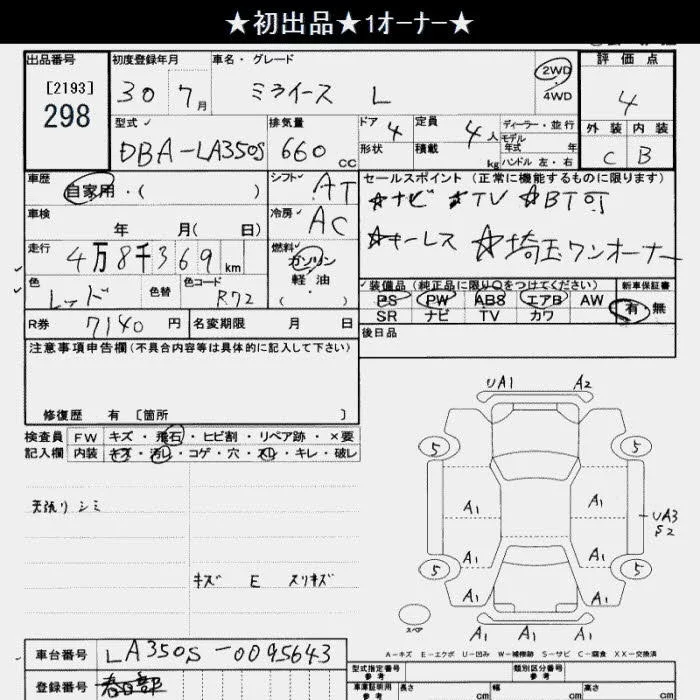 ★初出品★1オーナー★
出品番号
[2193]
298
初度登録年月
30 7月
車名・グレード
ミライース L
2WD
4WD
評価点
4
外装 内装
C B
型式
DBA-LA350S
排気量
660 cc
ドア 4
形状
定員 4人
積載 kg
ディーラー・並行
モデル
年式 年
ハンドル 左・右
車歴
自家用・( )
シフト AT
車検
年 月( 日)
冷房 AC
走行
4万8千369 km
燃料
ガソリン
軽油
( )
色
レッド
色替
色コード
R72
R券 7140円
名変期限 月 日
セールスポイント(正常に機能するものに限ります)
☆ナビ ☆TV ☆BT可
☆キーレス ☆埼玉ワンオーナー
装備品(純正品に限り○をつけてください)
PS PW ABS エアB AW
SR ナビ TV カワ
新車保証書
有 無
後日品
注意事項申告欄(不具合内容等は具体的に記入して下さい)
修復歴 有 [箇所 ]
検査員
記入欄
FW キズ・飛石・ヒビ割・リペア跡・×要
内装 キズ・汚レ・コゲ・穴・スレ・キレ・破レ
天張り シミ
キズ E スリキズ
UA1 A2
5 5
A1 A1
UA3
S2
A1 A1
5 5
A1 A1
スペア
A1 A1 A1
A-キズ E-エクボ U-凹み W-補修跡 S-サビ C-腐食 XX-交換済
車台番号 LA350S-0095643
登録番号 春日部
型式指定番号
参考
類別区分番号
参考
車庫証明用
参考
長さ cm
幅 cm
高さ cm